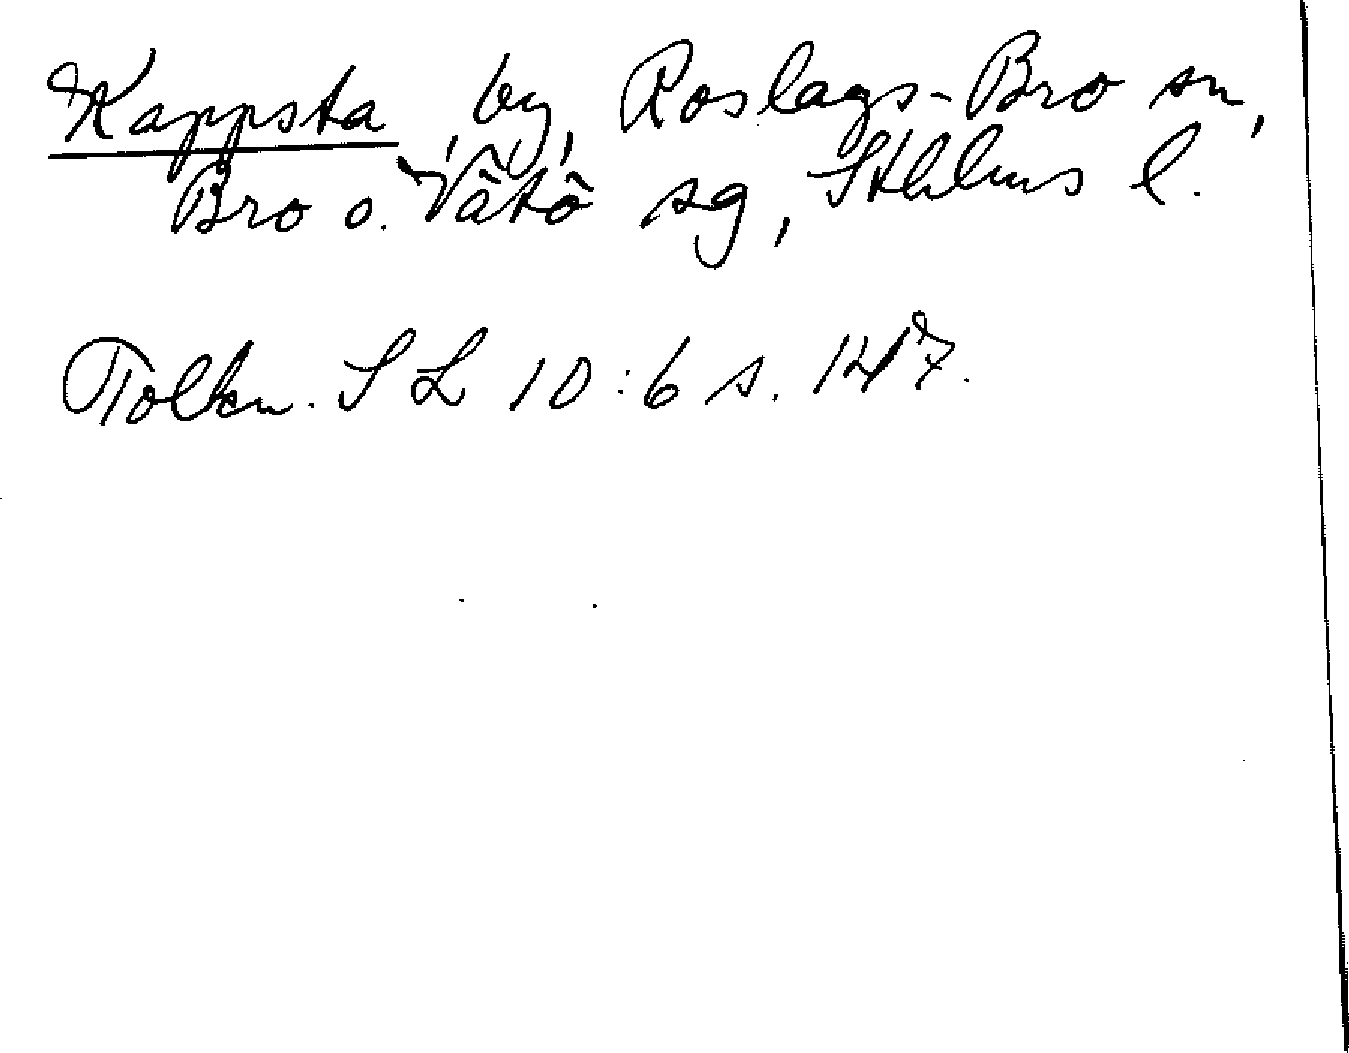 Kappsta, by, Roslags-Bro sn,
Bro o. Vätö sg, Sthlms l.
Tolkn. SL 10:6 s. 147.